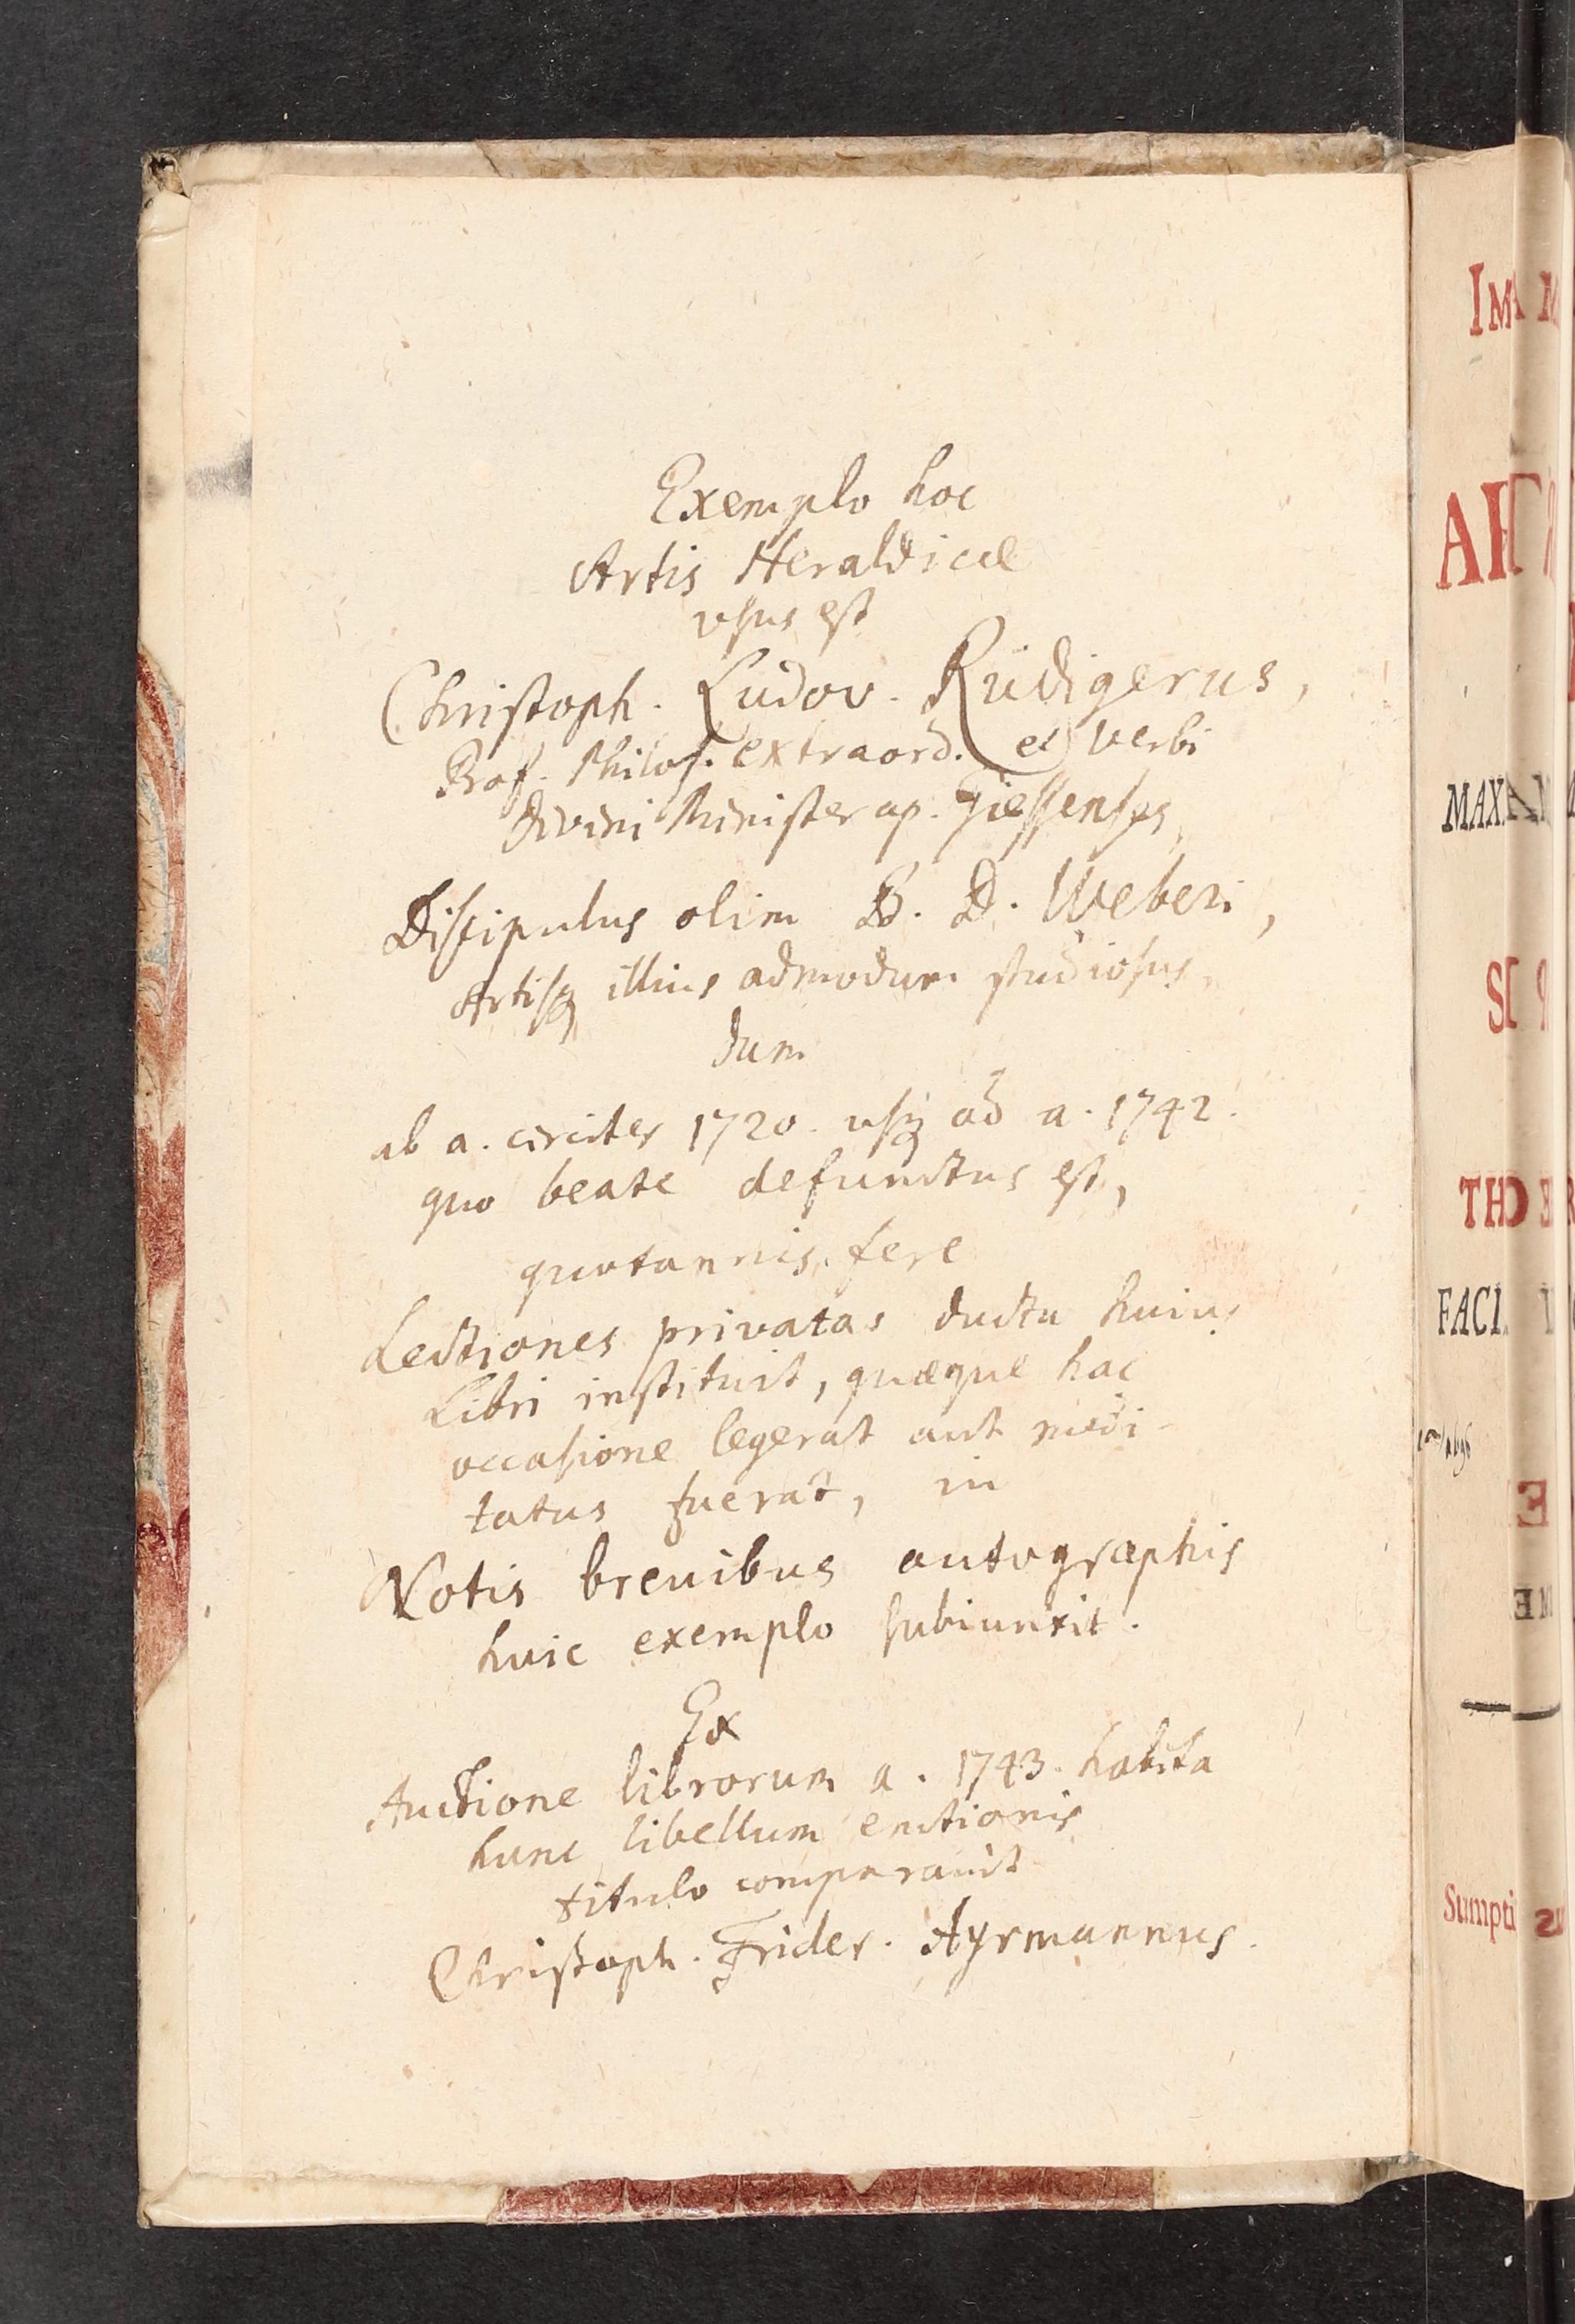 Exemplo hoc
Artis Heraldicæ
vsus est
Christoph. Ludov. Rüdigerus,
Prof. Philos. extraord. et verbi
divini Minister ap. Giessenses,
Discipulus olim B. D. Weberi,
Artisq illius admodum studiosus,
dum
ab a. circiter 1720. usq ad a. 1742.
quo beate defunctus est,
quotannis fere
Lectiones privatas ductu huius
Libri instituit, quæque hac
occasione legerat aut medi-
tatus fuerat, in
Notis brevibus autographis
huic exemplo subiunxit.
Ex
Auctione librorum a. 1743. habita
hunc libellum emtionis
titulo comparauit
Christoph. Frider. Ayrmannus.
IM
AR
MAX
TH
FACI
Sumpti